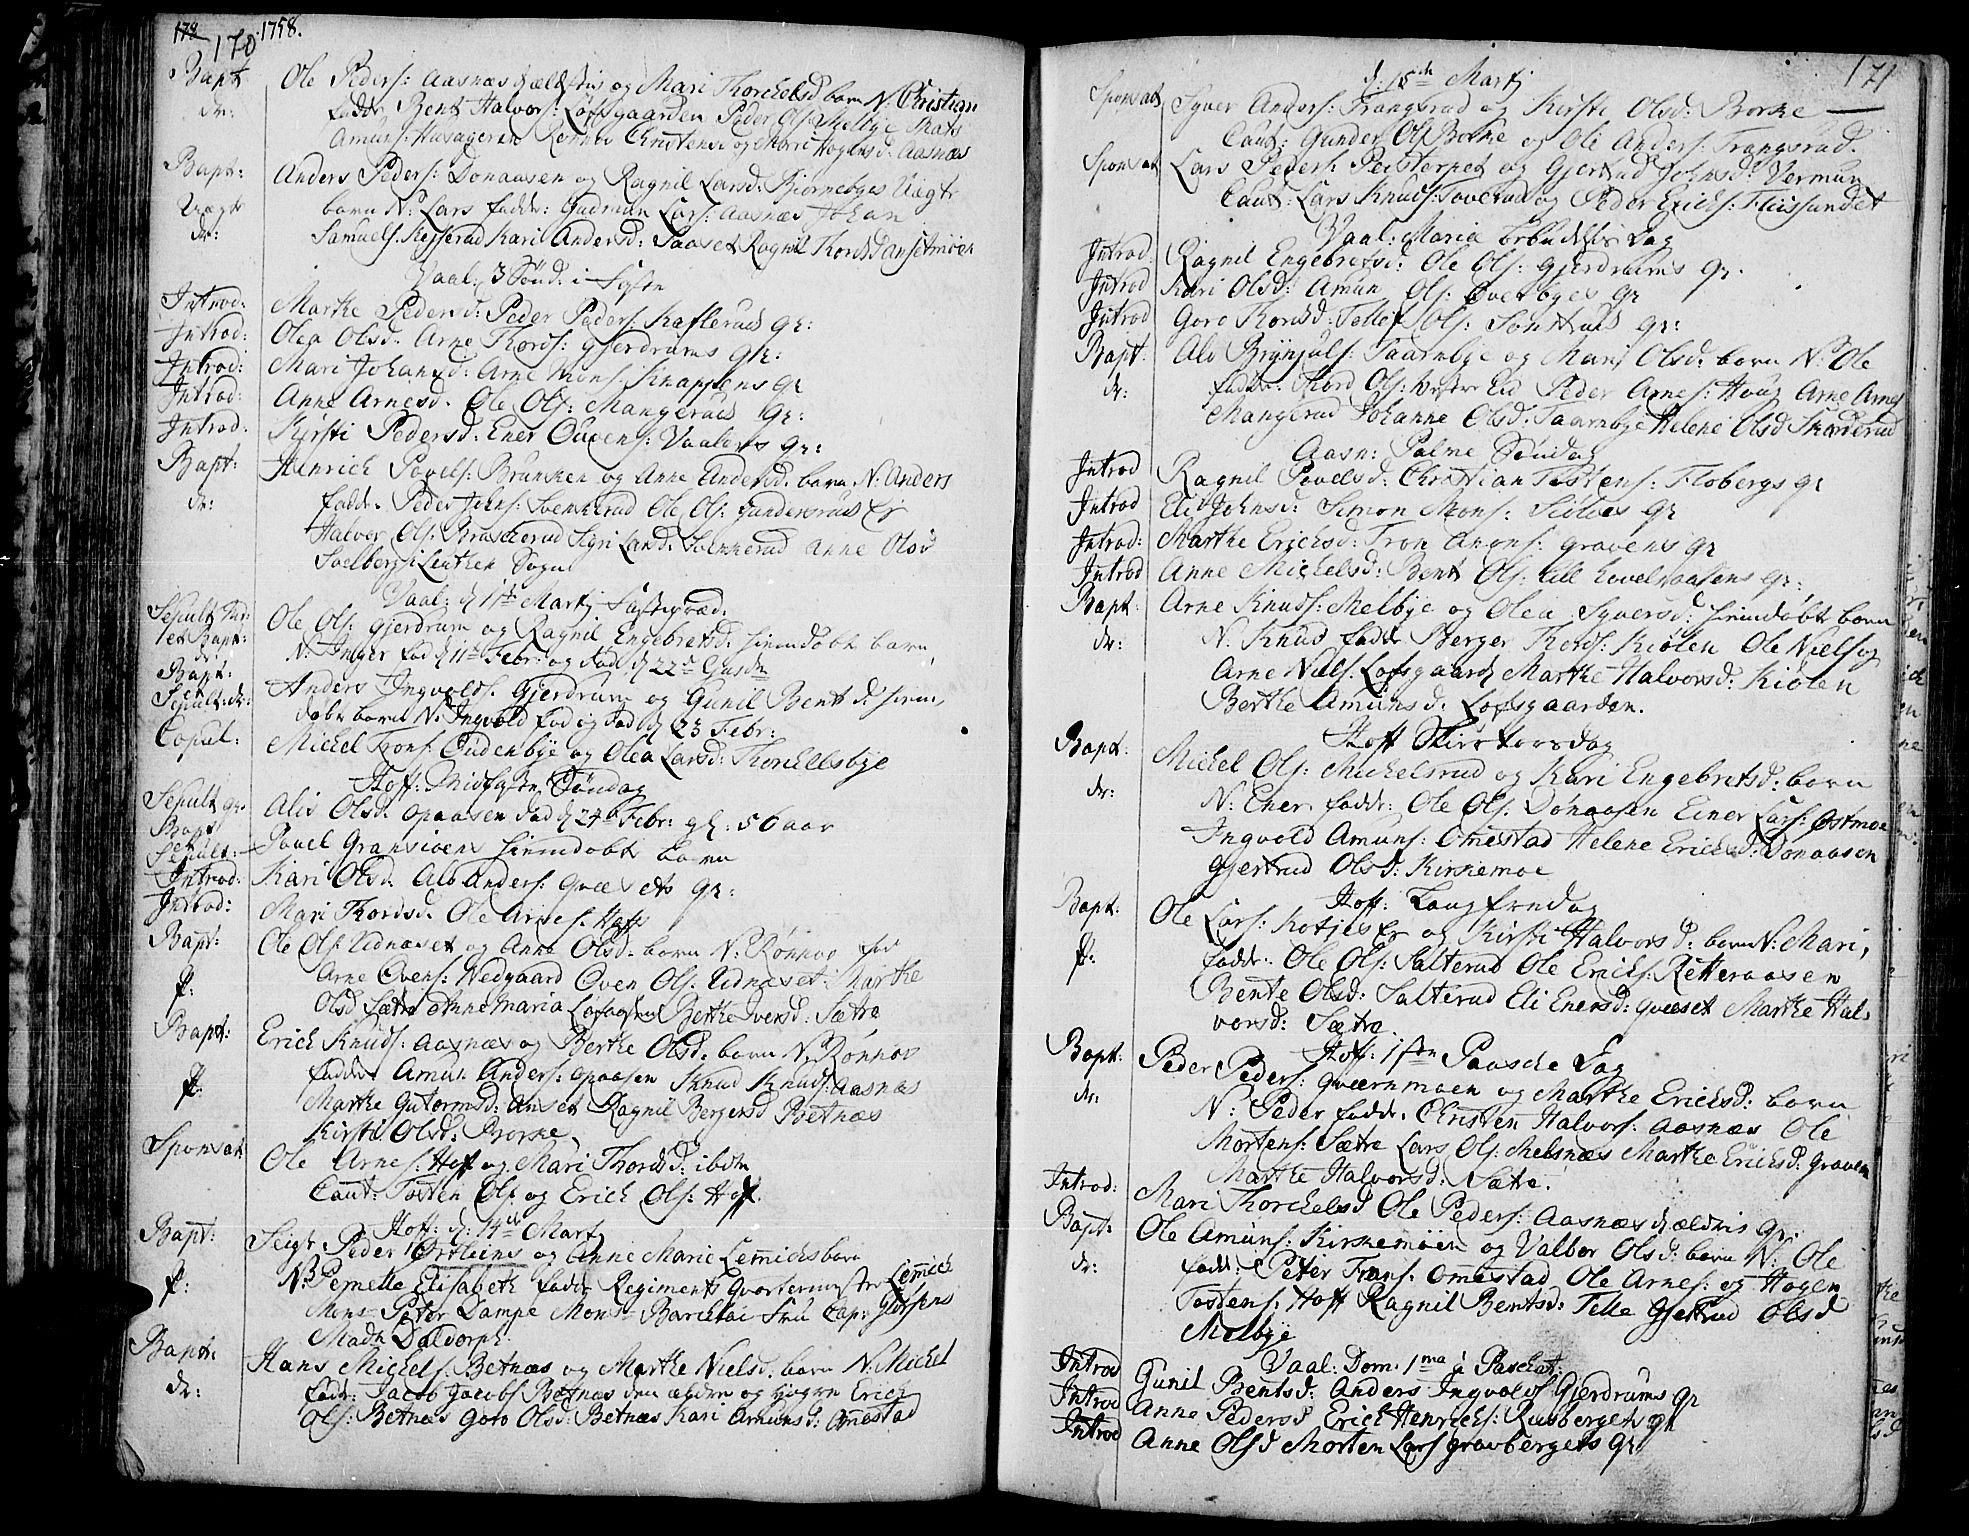 170 1758.
Bapt Ole Peders: Aasnæs d ældstis og Mari Thorchelsd barn N: Christian
dr: fadde Bent Halvors: Løfsgaarden Peder Ols: Melbye Mats
Amuns: Husageren Christensd og Mari Hogensd: Aasnæs
Bapt: Anders Peders: Donaasen og Ragnil Larsd: Biørnebyes Uægte
Uægt barn N: Lars fadd: Gudmun Lars: Aasnæs Johan
dr: Samuels: Kari Andersd: Ragnil Thordsd
Vaal: 3 Sønd: i Faste
Introd: Marthe Pedersd: Peder Peders: Kaflerus qr:
Introd: Olea Olsd. Arne Thords: Gjerdrums qr:
Introd: Mari Johansd: Arne Mons: Knappens qr
Introd: Anne Arnesd. Ole Ols: Mangeruds qr:
Introd. Kirsti Pedersd: Ener Ovens: Vaalers qr:
Bapt: Henrich Povels: Brunken og Anne Andersd. barn N: Anders
dr: fadd. Peder Johns: Svenkerud Ole Ols: Gundersrud Er
Halvor Ols: Braskerud Sigri Larsd. Svenkerud Anne Olsd
Soelberg i Leuthen Sogn
Vaal: d 11te Martj Fastepræd:
Sepult Ole Ols: Gjerdrum og Ragnil Engebretsd. hiemdøbt barn
et Bapt: N: Inger fød d 11te Febr: og død d 22de
Bapt: Anders Ingvolds. Gjerdrum og Gunil Bentsd: hiem,
Sepult: dr: døbt barn N: Ingvold fød og død d 23 Febr:
Copul: Michel Trons: Oudenbye og Olea Larsd: Thorchelsbye
Hoff: Midfaste Søndag
Sepult qr. Alis Olsd. Opaasen død d 24de Febr: gl: 56 aar
Bapt Povel Gransiøens hiemdøbt barn
Sepult:
Introd: Kari Olsd. Alb Anders: Qvæsets qr:
Introd: Mari Thordsd. Ole Arnes. Hoffs
Bapt: Ole Ols: Eidnæset og Anne Olsd. barn N: Rønnov fad
p: Arne Ovens: Nedgaard Oven Ols: Eidnæset: Marthe
Olsd Sætre Anne Maria Løfaasen Berthe Iversd: Sætre
Bapt: Erich Knuds: Aasnæs og Berthe Olsd. barn N: Rønnov
p: fadd: Amun Anders: Opaasen Knud Knuds: Aasnæs
Marthe Gutormsd: Anset Ragnil Bergersd Betnæs
Kirsti Olsd: Borske
Sponsat Ole Arnes: Hoff og Mari Thordsd: ibdn
Caut: Tosten Ols og Erich Ols: Hoff.
Hoff: d: 14de Martj
Bapt: Seigr Peder Ortleins og Anne Marie Lemichs barn
p: N: Pernelle Elisabeth fadd: Regiments Qvartermester Lemich
Mons Peter Dampe Mons Barclai Fru Cap: Giorsens
Madm Daldorph:
Bapt: Hans Michels: Betnæs og Marthe Nielsd. barn N. Michel
dr: fadd: Jacob Jacobs Betnæs den ældre og yngre Erich
Ols: Betnæs Goro Olsd: Betnæs Kari Amunsd: Omestad
171
d: 15de Martj
Sponsat Syver Anders: Frangsrud og Kirsti Olsd: Borske
Caut: Gunder Ols Borske og Ole Anders: Frangsrud.
Sponsat Lars Peders: Peisterpet og Gjertrud Johnsd: Vermun
Caut: Lars Knuds: Toverud og Peder Erichs: Fliissundet
Vaal: Maria bebudelsis Dag
Introd: Ragnil Engebretsd: Ole Ols: Gjerdrums qr.
Introd Kari Olsd: Amun Ols: Overbyes qr
Introd Goro Thordsd: Tellef Ols: qr:
Bapt: Alv Brynjuls: Taarnbye og Mari Olsd. barn N: Ole
dr: fadd: Thord Ols: Vester Eid Peder Arnes: Houg Arne Arnes
Mangerud Johanne Olsd. Taarnbye Helene Olsd Skarderud
Aasn: Palme Søndag
Introd Ragnil Povelsd: Christian Tostens: Flobergs qr
Introd Eli Johnsd: Simon Mons: qr
Introd: Marthe Erichsd: Tron Amuns: Gravens qr
Introd Anne Michelsd: Bent Ols: Lill qr:
Bapt: Arne Knuds: Melbye og Olea Syversd: hiemdøbt barn
dr: N: Knud fadde Berger Thords: Kiølen Ole Niels og
Arne Niels. Lofsgaard Marthe Halvorsd: Kiølen
Berthe Amunsd. Løfsgaarden.
Hoff Skirstorsdag
Bapt: Michel Ols: Michelsrud og Kari Engebretsd: barn
dr: N: Ener. fadd: Ole Ols. Dønaasen Einer Lars: Østmoe
Ingvold Amuns: Omestad Helene Erichsd: Donaasen
Gjertrud Olsd: Kirkemoe
Hoff: Langfredag
Bapt. Ole Lars: og Kirsti Halvorsd: barn N: Mari,
p: fadd: Ole Ols: Salterud Ole Erichs: Retteraasen
Bente Olsd: Salterud Eli Enersd: Qvæset Marthe Hal-
vorsd: Sætre.
Hoff: 1ste Paasche Dag
Bapt: Peder Peders: Qværnmoen og Marthe Erichsd: barn
dr: N: Peder fadd. Christen Halvors: Aasnæs Ole
Mortens: Sætre Lars Ols: Melsnæs Marthe Erichsd: Graven
Marthe Halvorsd: Sætre.
Introd: Mari Thorchelsd Ole Peders: Aasnæs d ældris qr:
Bapt: Ole Amuns: Kirkemoen og Valbor Olsd: barn N: Ole
dr: fadd: Peter Frans. Omestad Ole Arnes: og Hogen
Tostens: Hoff Ragnil Bentsd: Telle Gjertrud Olsd
Melbye
Vaal: Dom: 1ma à Paschat:
Introd Gunil Bentsd: Anders Ingvolds Gjerdrums qr
Introd Anne Pedersd Erich Henrichs: Rusbergets qr
Introd Anne Olsd Morten Lars Gravbergets qr